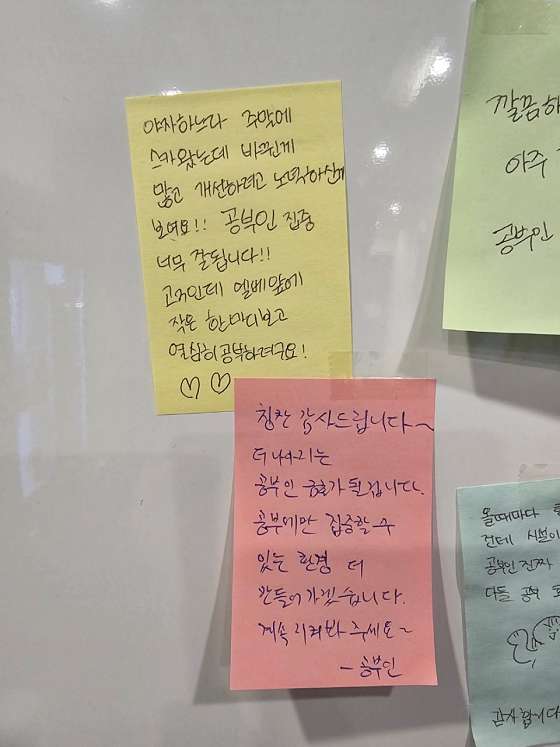 야자하느라 주말에
스카왔는데 바뀐게
많고 개선하려고 노력하신게
보여요!! 공부인 집중
너무 잘됩니다!!
고3인데 엘베앞에
작은 한마디보고
열심히 공부하려구요!
칭찬 감사드립니다~
더 나아지는
공부인 금호가 될겁니다.
공부에만 집중할 수
있는 환경 더
만들어 가겠습니다.
계속 지켜봐 주세요~
- 공부인
깔끔하
아주
공부인
올때마다
건데 시설이
공부인 진짜
다들 공부
감사합니다